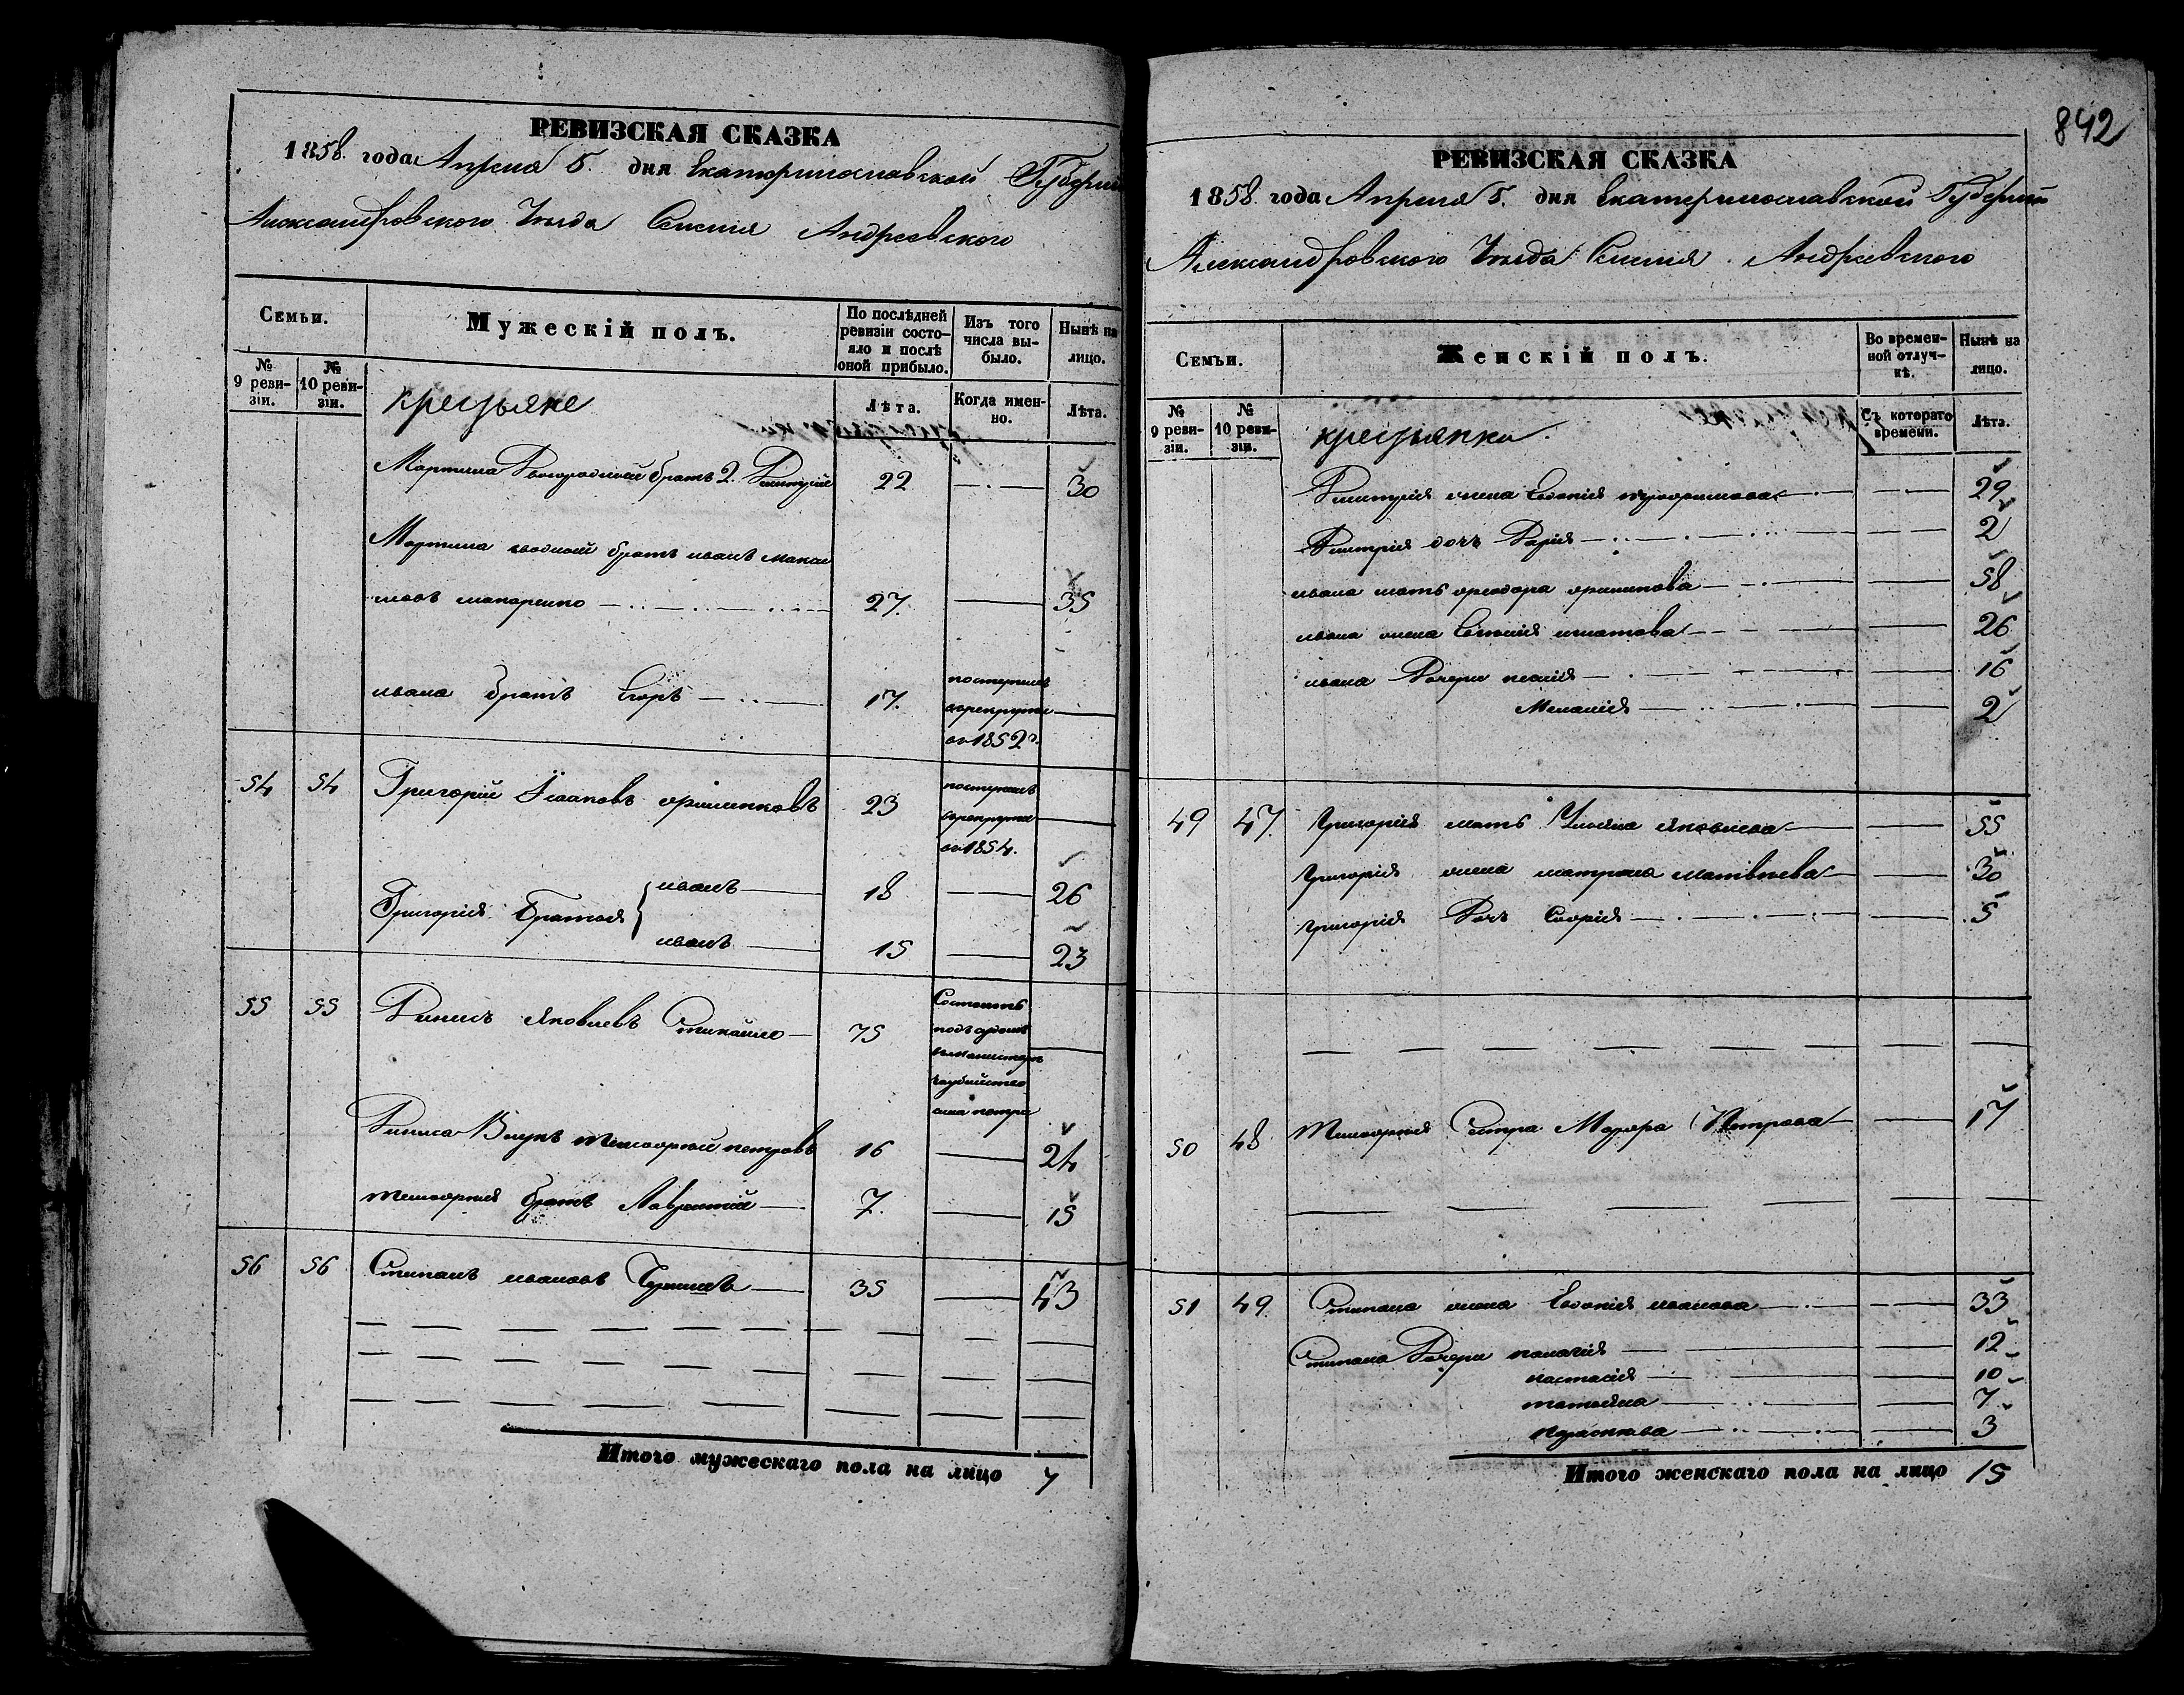 РЕВИЗСКАЯ СКАЗКА
1858. года Апреля 5. дня Екатеринославской Губернии
Александровского Уезда Селения Андреевского
Семьи.
Мужескій полъ.
По послѣдней ревизіи состояло и послѣ оной прибыло.
Изъ того числа выбыло.
Нынѣ на лицо.
№ 9 ревизіи.
№ 10 ревизіи.
крестьяне
Лѣта.
Когда именно.
Лѣта.
Мартина братъ 2. Дмитрій 22 30
Мартина сводный братъ иванъ макси
мовъ макаренко 27. 35
ивана братъ Егоръ 17. поступилъ
врекруты
въ 1852 г.
54 54 Григорій 23 поступилъ
врекруты
въ 1854.
Григорія братья иванъ 18 26
иванъ 15 23
55 55 Денисъ Яковлевъ 75 Состоитъ
подъ
сына петра
Дениса Внукъ Тимофей петровъ 16 24
Тимофея братъ Лаврентій 7. 15
56 56 Степанъ ивановъ 35 43
Итого мужескаго пола на лицо 7
842
РЕВИЗСКАЯ СКАЗКА
1858. года Апреля 5. дня Екатеринославской Губернии
Александровского Уезда Селения Андреевского
Семьи.
Женскій полъ.
Во временной отлучкѣ.
Нынѣ на лицо.
№ 9 ревизіи.
№ 10 ревизіи.
крестьянки.
Съ котораго времени.
Лѣта.
Дмитрія жена Евдокія 29
Дмитрія дочь Дарія 2
ивана мать федора 58
ивана жена Евгенія игнатова 26
ивана Дочери 16
Меланія 2
49 47. григорія мать Ульяна яковлева 55
григорія жена матрона матвѣева 30
григорія Дочь Софія 5
50 48 Тимофея Сестра Марфа Петрова 17
51 49. Степана жена Евдокія иванова 33
Степана Дочери палагія 12
настасія 10
татьяна 7
параскева 3
Итого женскаго пола на лицо 15